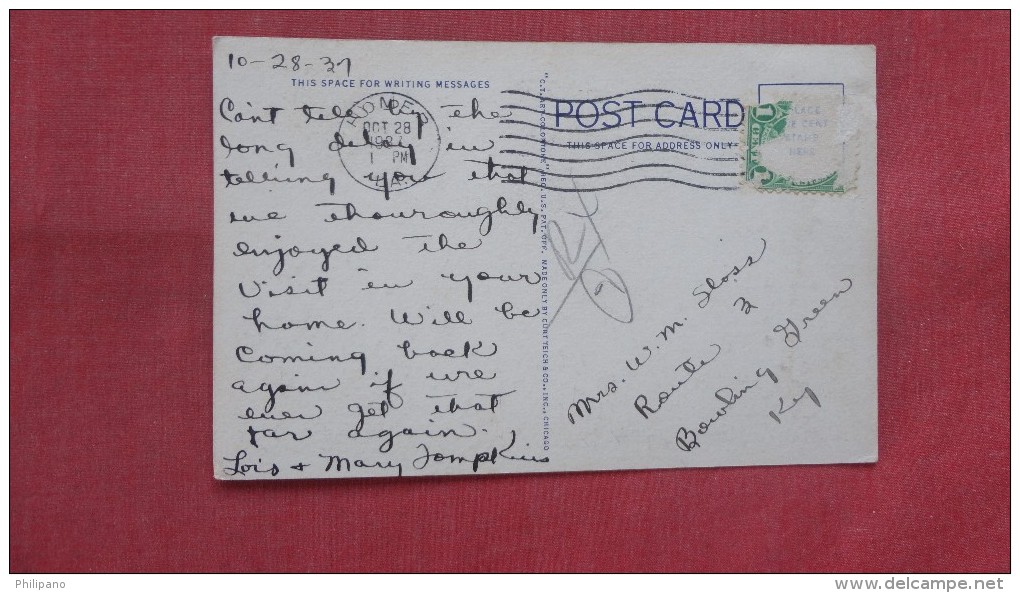 10-28-37
THIS SPACE FOR WRITING MESSAGES
Can't tell the
long delay in
telling you that
we thouroughly
enjoyed the
visit in your
home. Will be
coming back
again if we
ever get that
far again.
Lois + Mary Tompkins
HOMER
OCT 28
1937
1 PM
LA.
"C.T. ART-COLORTONE" REG. U.S. PAT. OFF. MADE ONLY BY CURT TEICH & CO., INC., CHICAGO
POST CARD
THIS SPACE FOR ADDRESS ONLY
PLACE
ONE CENT
STAMP
HERE
1 CENT
Mrs. W. M. Sloss
Route 2
Bowling Green
Ky
Philipano
www.delcampe.net